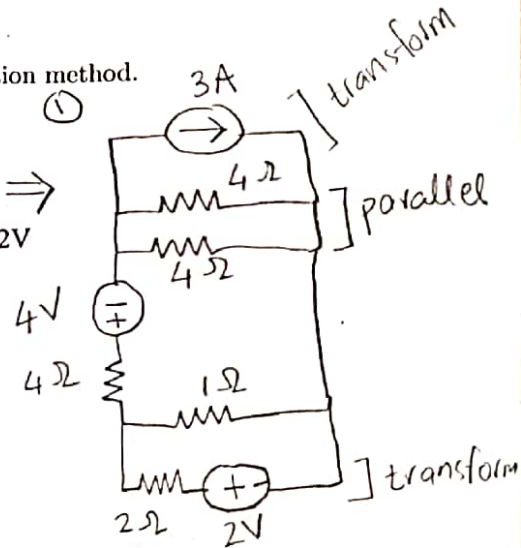 ion method.
①
3A
] transform
⇒
4Ω
] parallel
2V
4Ω
4V
- +
4Ω
1Ω
+ -
] transform
2Ω
2V